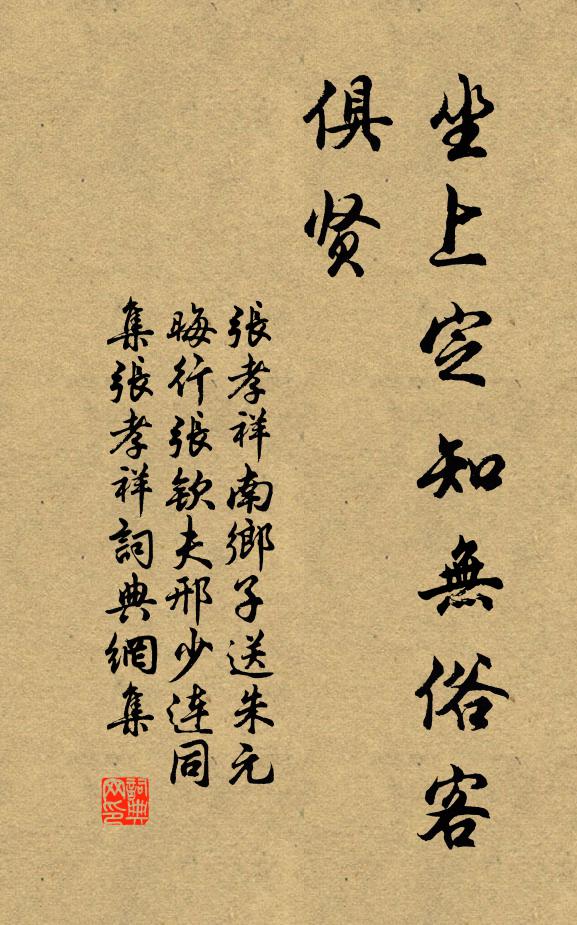 坐上定知無俗客
俱贤
張孝祥南鄉子送朱元
晦行張欽夫邢少连同
集張孝祥詞典網集
詞典网印